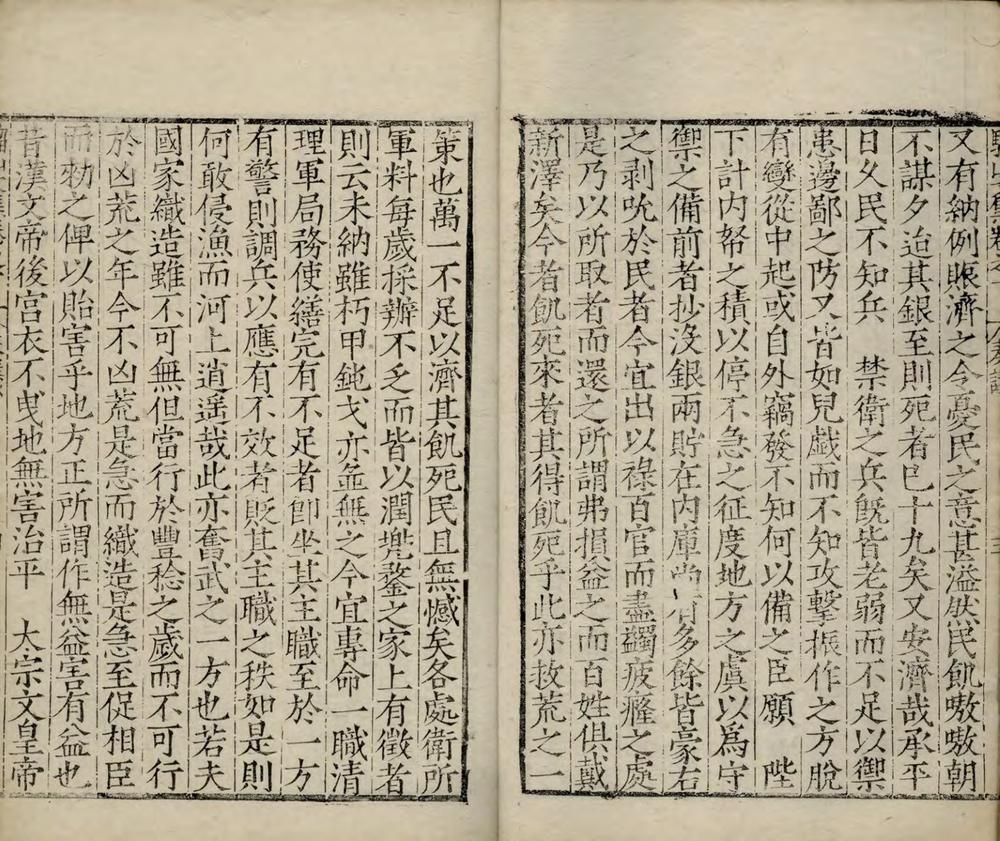 又有納例賑濟之令憂民之意甚溢然民飢嗷嗷朝
不謀夕迨其銀至則死者已十九矣又安濟哉承平
日久民不知兵　禁衛之兵旣皆老弱而不足以禦
患邊鄙之防又皆如兒戱而不知攻擊振作之方脫
有變從中起或自外竊發不知何以備之臣願　陛
下計内帑之積以停不急之征度地方之虞以爲守
禦之備前者抄没銀兩貯在内庫尚有多餘皆豪右
之剥吮於民者今宜出以祿百官而盡蠲疲癃之處
是乃以所取者而還之所謂弗損益之而百姓俱戴
新澤矣今者飢死來者其得飢死乎此亦救荒之一
策也萬一不足以濟其飢死民且無憾矣各處衛所
軍料每歲採辦不乏而皆以潤兠鍪之家上有徵者
則云未納雖朽甲鈍戈亦並無之今宜專命一職清
理軍局務使繕完有不足者卽坐其主職至於一方
有警則調兵以應有不效者貶其主職之秩如是則
何敢侵漁而河上逍遥哉此亦奮武之一方也若夫
國家織造雖不可無但當行於豐稔之歲而不可行
於凶荒之年今不凶荒是急而織造是急至促相臣
而勑之俾以貽害乎地方正所謂作無益害有益也
昔漢文帝後宫衣不曳地無害治平　太宗文皇帝